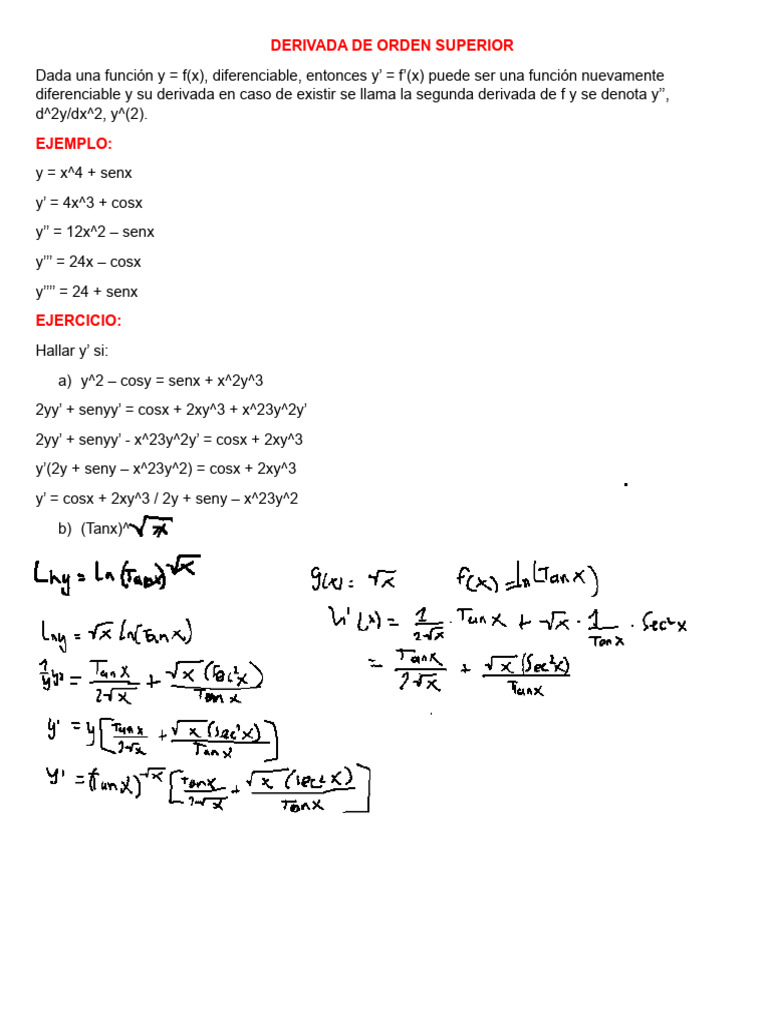 DERIVADA DE ORDEN SUPERIOR
Dada una función y = f(x), diferenciable, entonces y’ = f’(x) puede ser una función nuevamente
diferenciable y su derivada en caso de existir se llama la segunda derivada de f y se denota y’’,
d^2y/dx^2, y^(2).
EJEMPLO:
y = x^4 + senx
y’ = 4x^3 + cosx
y’’ = 12x^2 – senx
y’’’ = 24x – cosx
y’’’’ = 24 + senx
EJERCICIO:
Hallar y’ si:
a) y^2 – cosy = senx + x^2y^3
2yy’ + senyy’ = cosx + 2xy^3 + x^23y^2y’
2yy’ + senyy’ - x^23y^2y’ = cosx + 2xy^3
y’(2y + seny – x^23y^2) = cosx + 2xy^3
y’ = cosx + 2xy^3 / 2y + seny – x^23y^2
b) (Tanx)^√x
Lny = Ln(Tanx)^√x
Lny = √x ln(Tanx)
1/y y' = Tanx/2√x + √x(Sec²x)/Tanx
y' = y[Tanx/2√x + √x(Sec²x)/Tanx]
y' = (Tanx)^√x [Tanx/2√x + √x(Sec²x)/Tanx]
g(x) = √x f(x) = ln(Tanx)
h'(x) = 1/2√x · Tanx + √x · 1/Tanx · Sec²x
= Tanx/2√x + √x(Sec²x)/Tanx